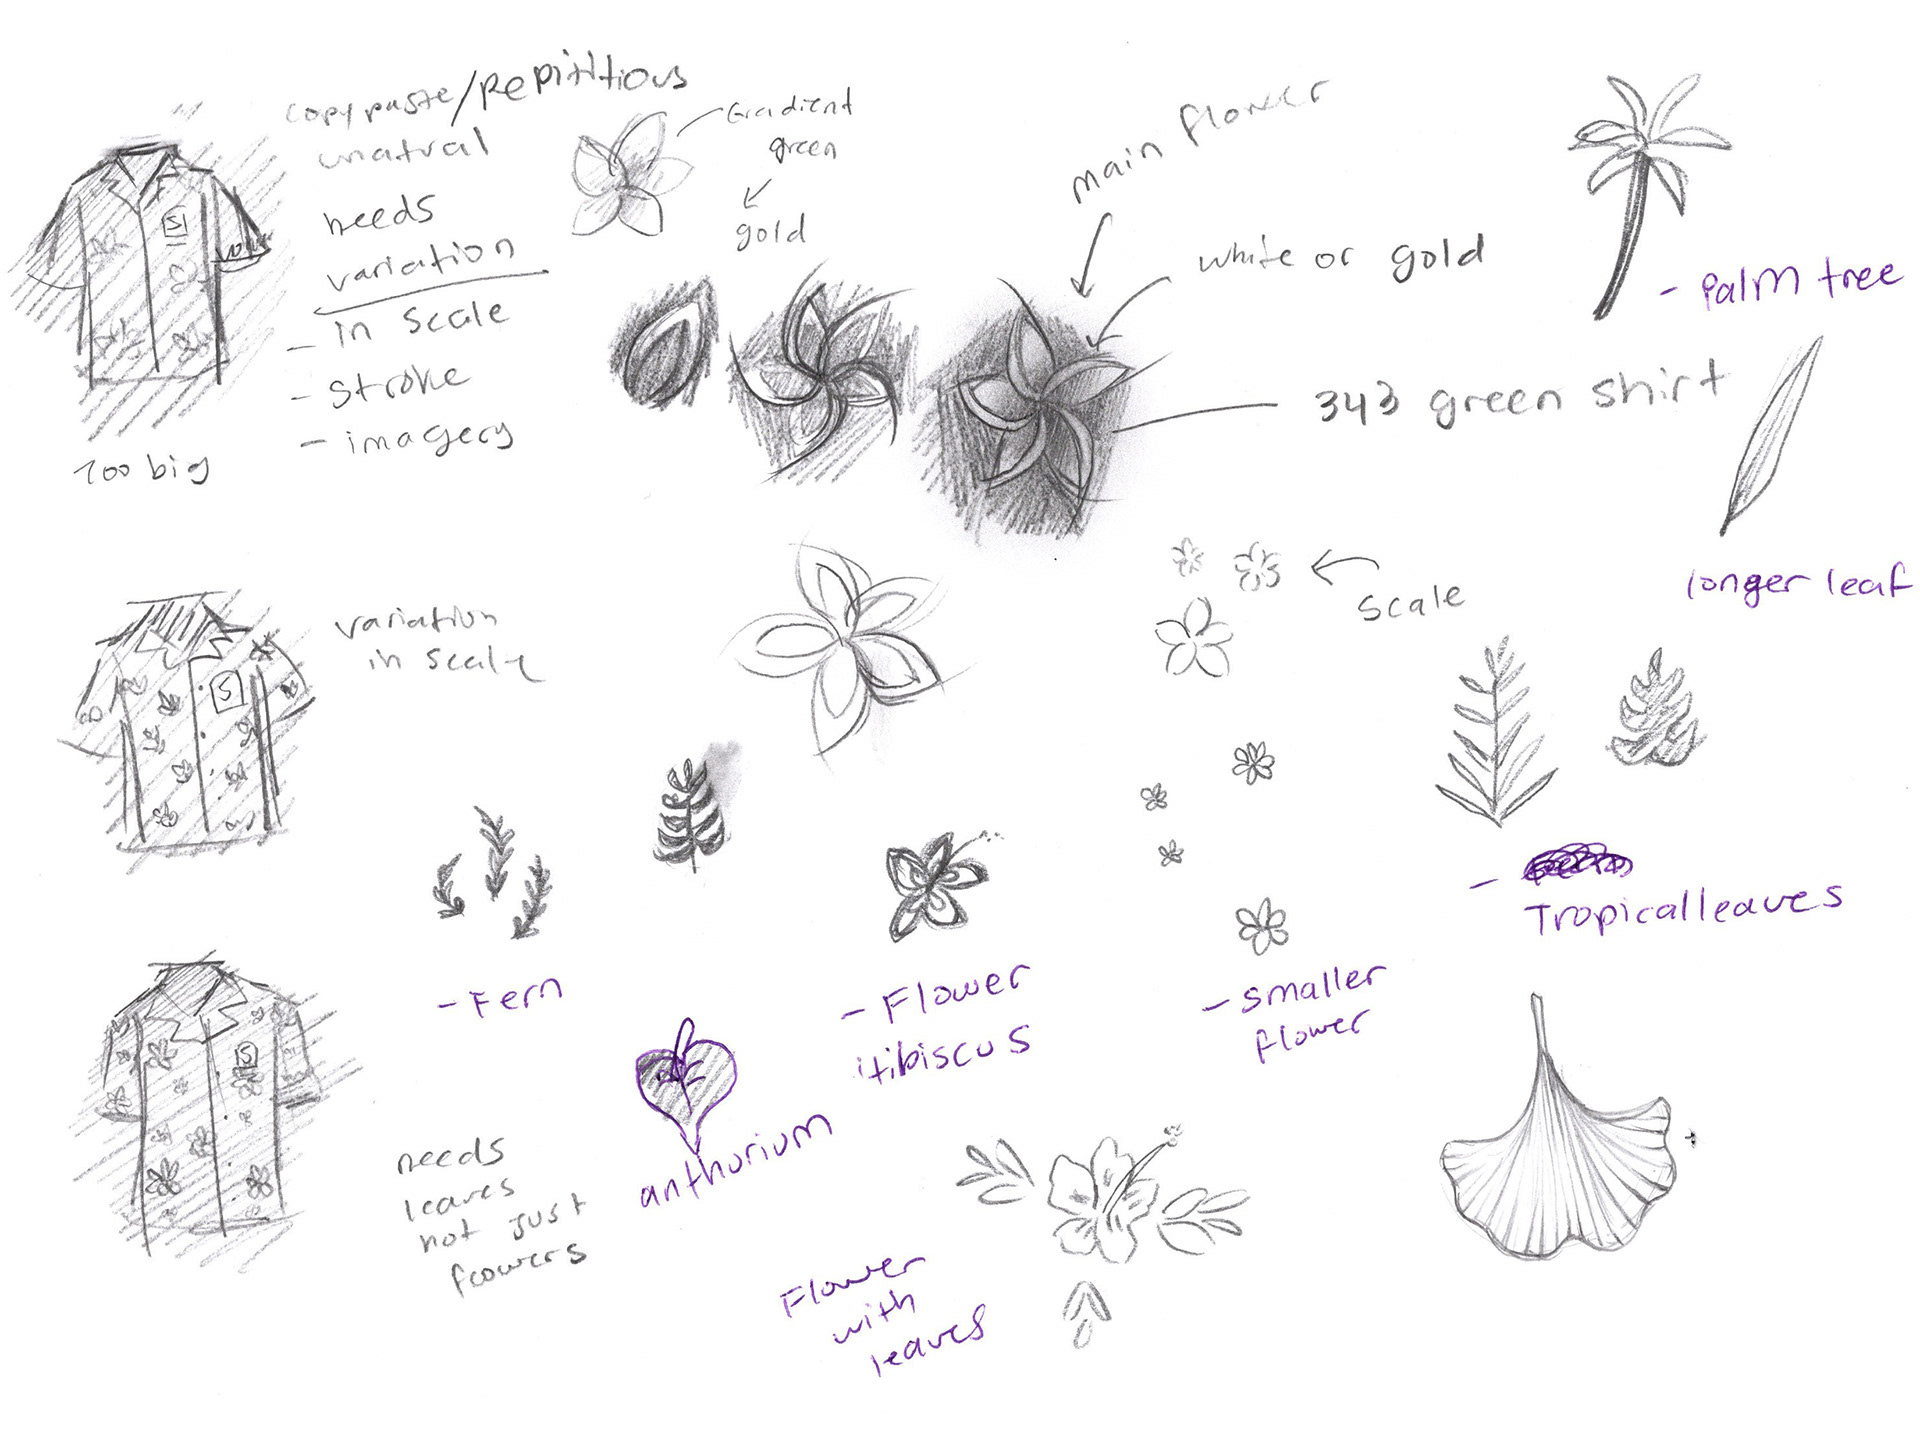 copy paste/Repititious
unatural
needs
variation
- in scale
- stroke
- imagery
Too big
Gradient
green
gold
main flower
white or gold
343 green shirt
- Palm tree
longer leaf
scale
variation
in scale
S
S
S
- Tropical leaves
- Fern
- Flower
Hibiscus
- smaller
flower
anthurium
needs
leaves
not just
flowers
Flower
with
leaves